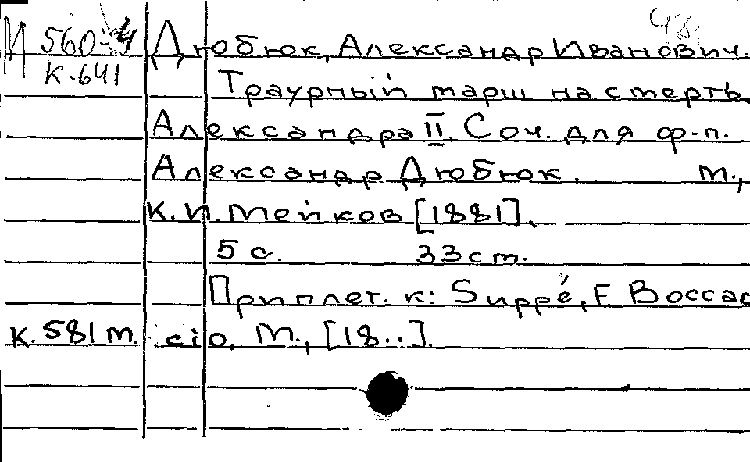 48
И 560-4 Дюбюк, Александр Иванович.
К.641
Траурный марш на смерть
Александра II. Соч. для ф-п.
Александр Дюбюк. М.,
К.И. Мейков [1881].
5 с. 33 см.
Приплет. к: Suppé, F. Boccac
к. 581 т. cio. М., [18..].